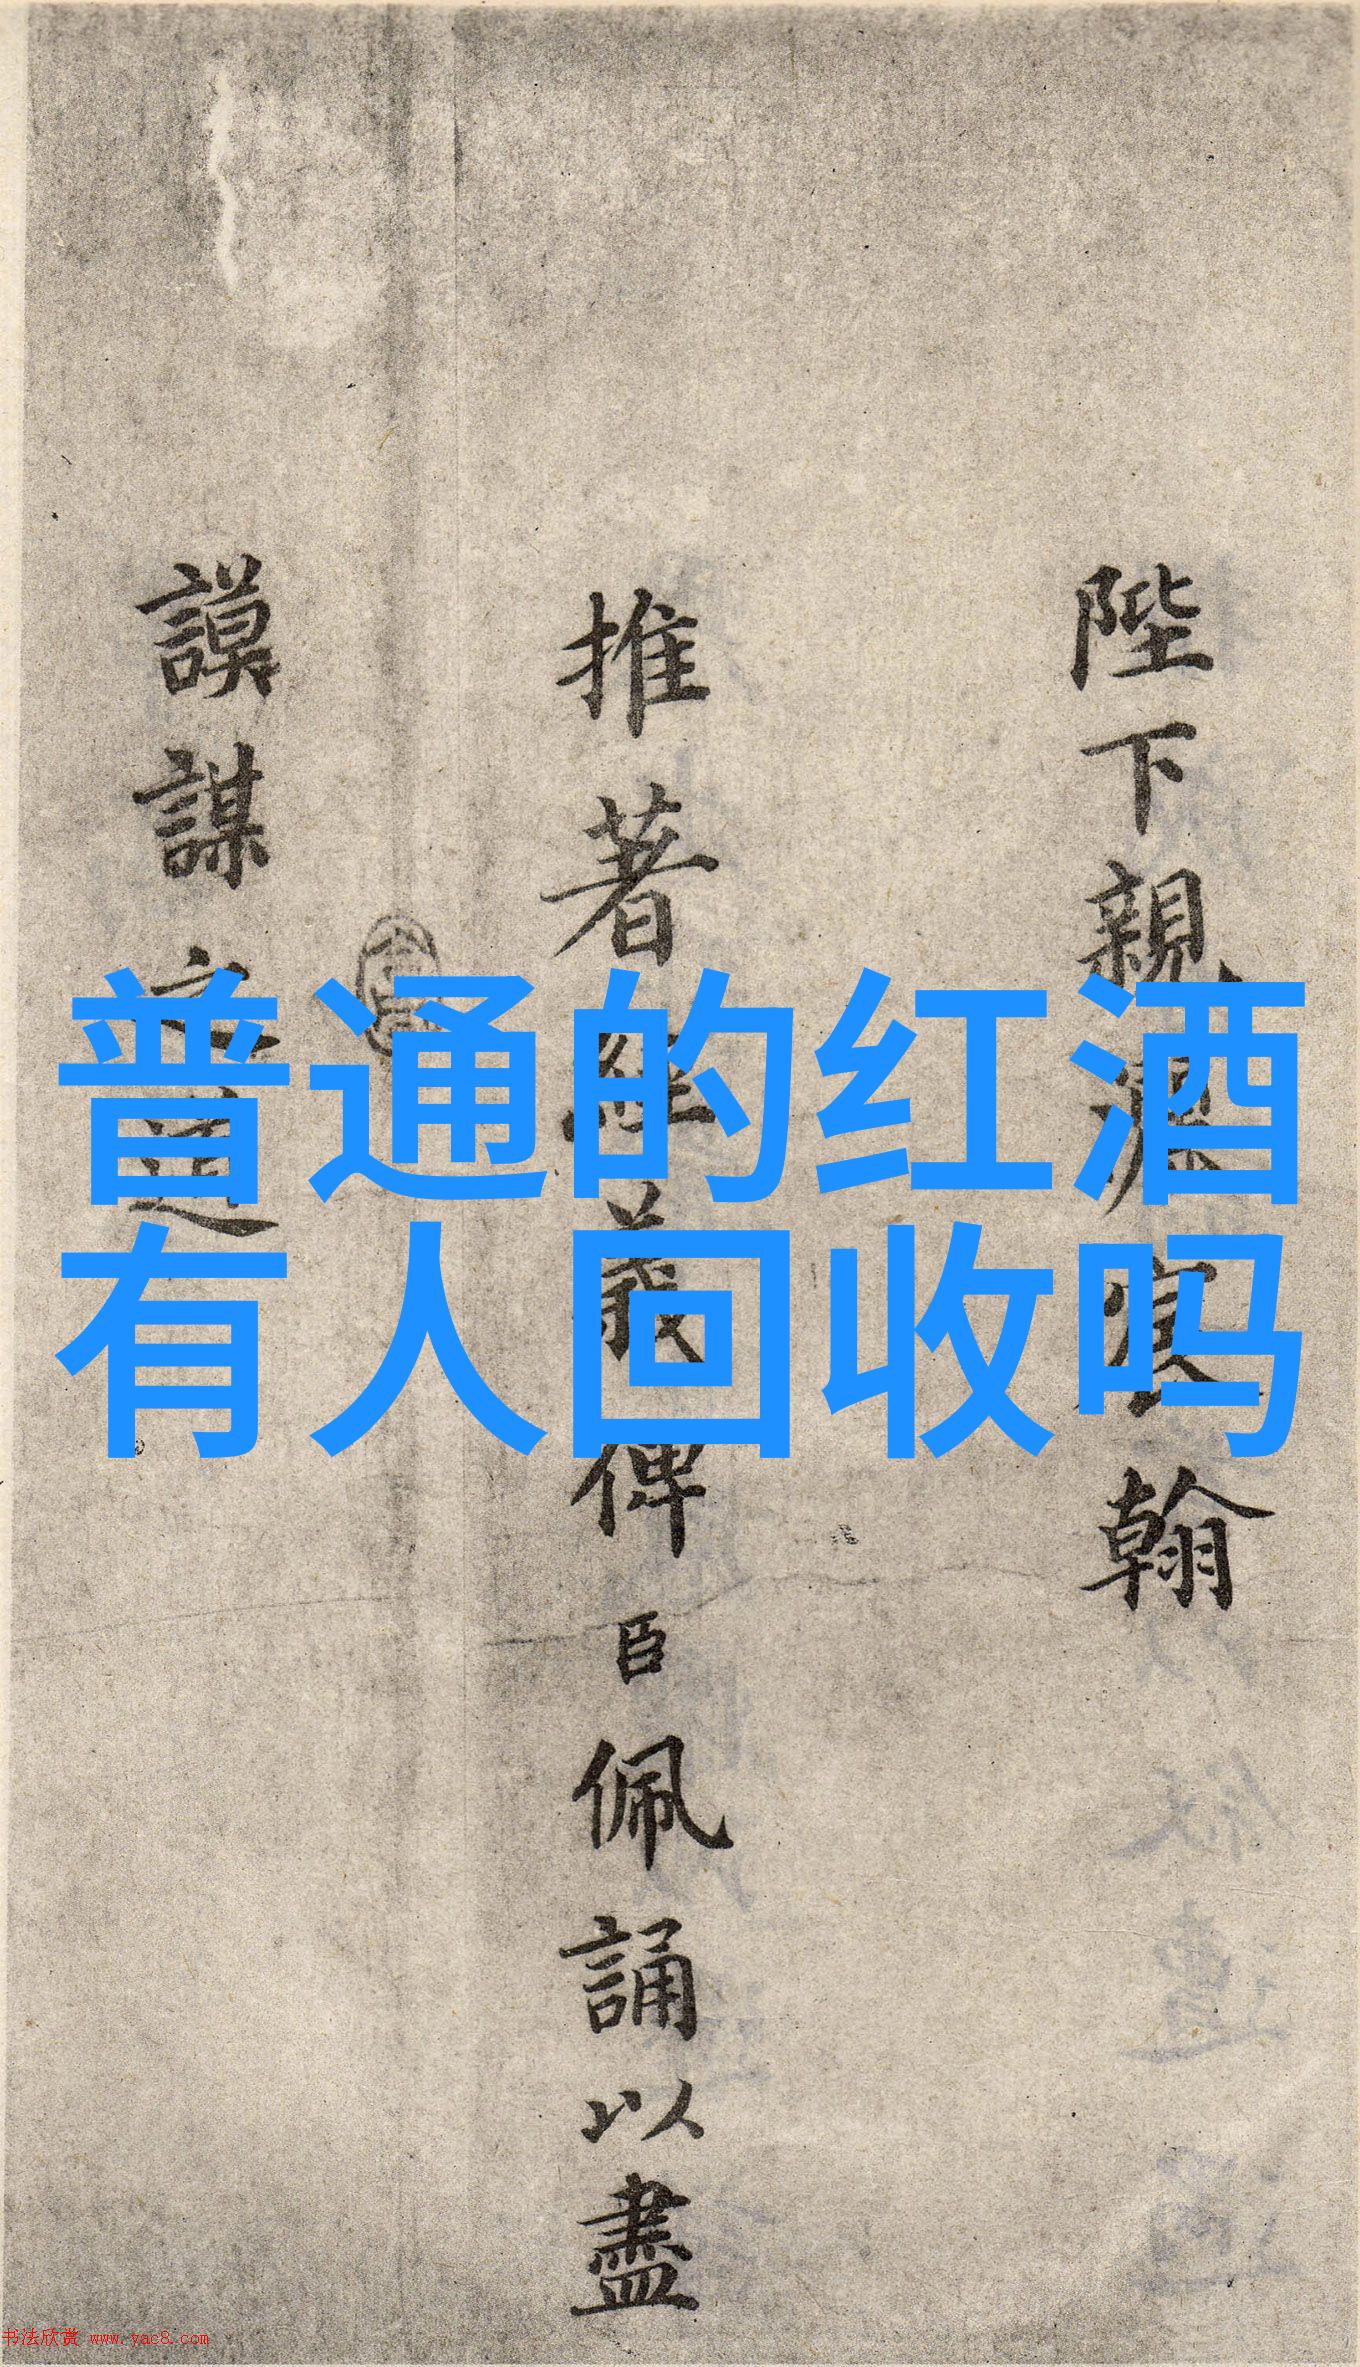 陛下親灑宸翰
推著經義俾臣佩誦以盡
謨謀之道
普通的红酒
有人回收吗
书法欣赏 www.yac8.com